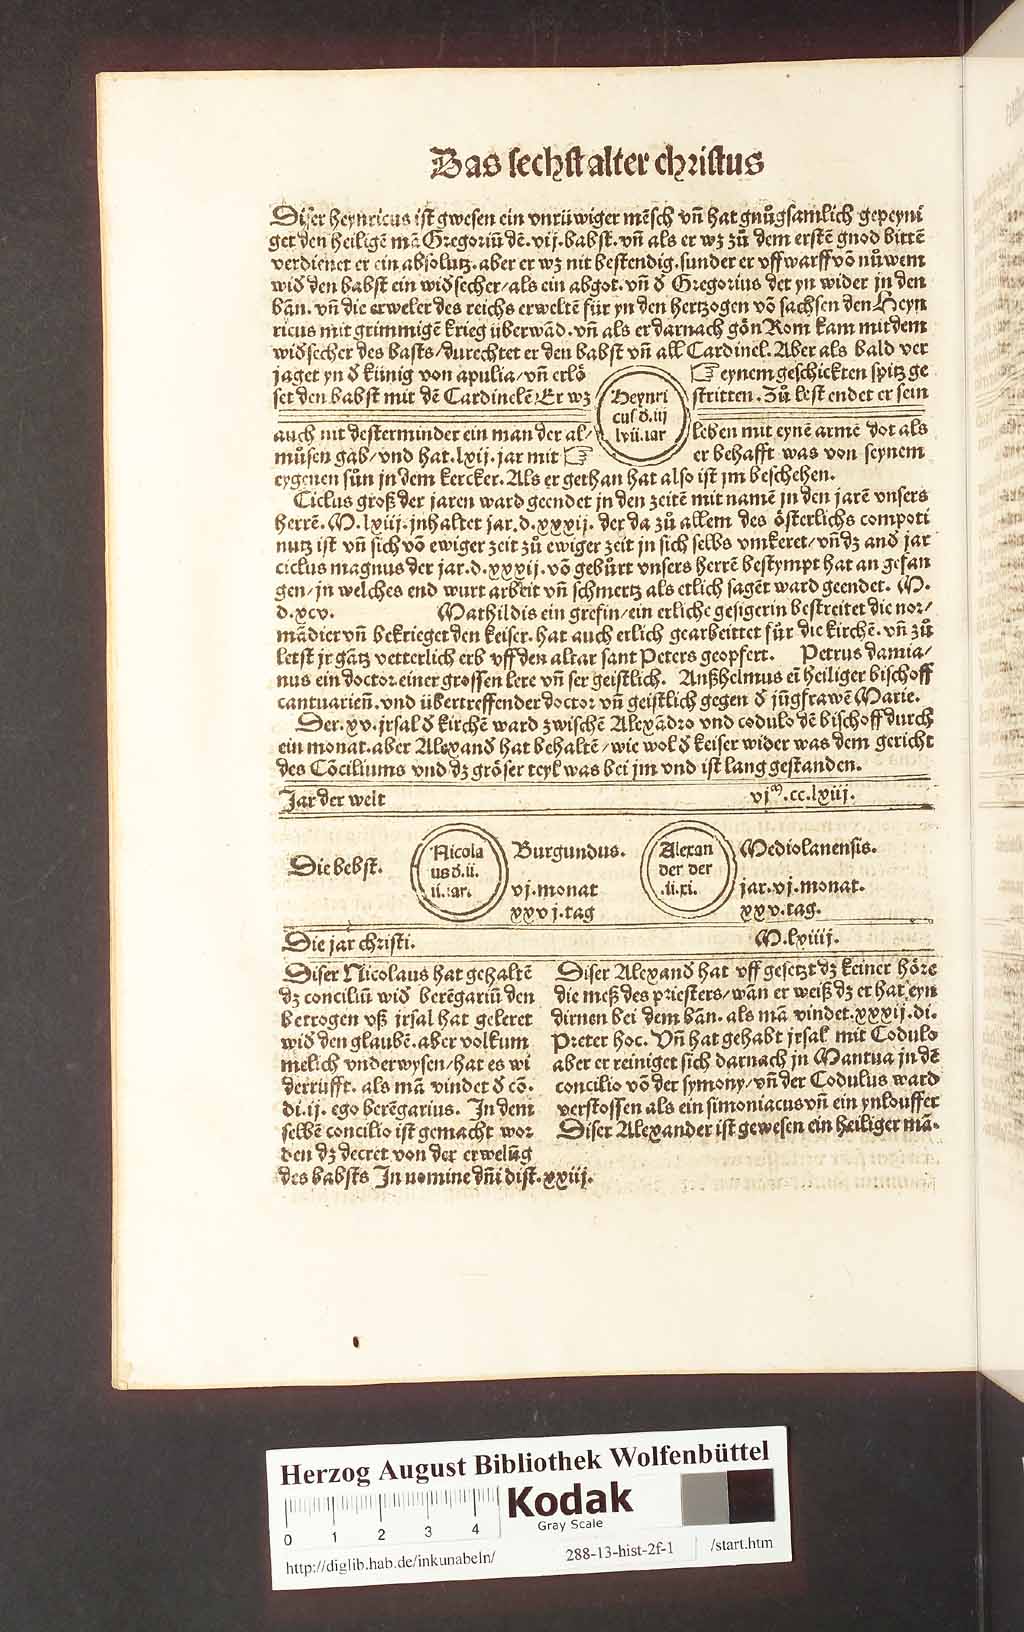 Das sechst alter christus
Diser heynricus ist gwesen ein vnrüwiger mēsch vñ hat gnůgsamlich gepeyni
get den heiligē mā Gregoriū dē .vij. babst. vñ als er wz zů dem erstē gnod bittē
verdienet er ein absolutz. aber er wz nit bestendig. sunder er vffwarff vō nůwem
wiđ den babst ein wiđsecher/als ein abgot. vñ đ Gregorius det yn wider jn den
ban. vñ die erweler des reichs erweltē für yn den hertzogen vō sachsen den Heyn
ricus mit grimmigē krieg überwād. vñ als er darnach gōn Rom kam mit dem
widsecher des basts/durechtet er den babst vñ all Cardinel. Aber als bald ver
jaget yn đ künig von apulia/vñ erlö
set den babst mit dē Cardinelē Er wz
auch nit desterminder ein man der al/
můsen gab/vnd hat .lxij. jar mit ☞
Heynri
cus đ.iij
lvii.iar
☞ eynem geschickten spitz ge
stritten. Zů lest endet er sein
leben mit eynē armē dot als
er behafft was von seynem
eygenen sůn jn dem kercker. Als er gethan hat also ist jm beschehen.
Ciclus groß der jaren ward geendet jn den zeitē mit namē jn den jarē vnsers
herrē. M. lxiij. jnhaltet jar. d. xxxij. der da zů allem des österlichs compoti
nutz ist vñ sich vō ewiger zeit zů ewiger zeit jn sich selbs vmkeret/vñ dz anđ jar
ciclus magnus der jar. d. xxxij. vō gebůrt vnsers herrē bestympt hat an gefan
gen/jn welches end wurt arbeit vñ schmertz als etlich sagēt ward geendet. M.
d.xcv. Mathildis ein grefin/ein erliche gesigerin bestreitet die nor/
mādier vñ bekrieget den keiser. hat auch erlich gearbeittet für die kirchē. vñ zů
letst jr gātz vetterlich erb vff den altar sant Peters geopfert. Petrus damia/
nus ein doctor einer grossen lere vñ ser geistlich. Anßhelmus eī heiliger bischoff
cantuarieñ. vnd übertreffender doctor vñ geistlich gegen đ jūgfrawē Marie.
Der .xv. jrsal đ kirchē ward zwischē Alexādro vnd codulo dē bischoff durch
ein monat. aber Alexanđ hat behaltē/wie wol đ keiser wider was dem gericht
des Cōciliums vnd dz gröser teyl was bei jm vnd ist lang gestanden.
Jar der welt vjᵐ.cc.lxiij.
Die bebst.
Nicola
us đ.ii.
ii.iar.
Burgundus.
vj.monat
xxvj.tag
Alexan
der der
.ii.xi.
Mediolanensis.
jar.vj.monat.
xxv.tag.
Die jar christi. M.lxiiij.
Diser Nicolaus hat gehaltē
dz conciliū wiđ berēgariū den
betrogen vß jrsal hat geleret
wiđ den glaubē. aber volkum
melich vnderwysen/hat es wi
derrüfft. als mā vindet đ cō.
di.ij. ego berēgarius. In dem
selbē concilio ist gemacht wor
den dz decret von der erwelūg
des babsts In nomine dñi dist. xxiij.
Diser Alexanđ hat vff gesetzt dz keiner höre
die meß des priesters/wān er weiß dz er hat eyn
dirnen bei dem ban. als mā vindet. xxxij. di.
Preter hoc. Vñ hat gehabt jrsal mit Codulo
aber er reiniget sich darnach jn Mantua jn dē
concilio vō der symony/vñ der Codulus ward
verstossen als ein simoniacus vñ ein ynlouffer
Diser Alexander ist gewesen ein heiliger mā.
Herzog August Bibliothek Wolfenbüttel
Kodak
Gray Scale
0 1 2 3 4
http://diglib.hab.de/inkunabeln/ 288-13-hist-2f-1 /start.htm